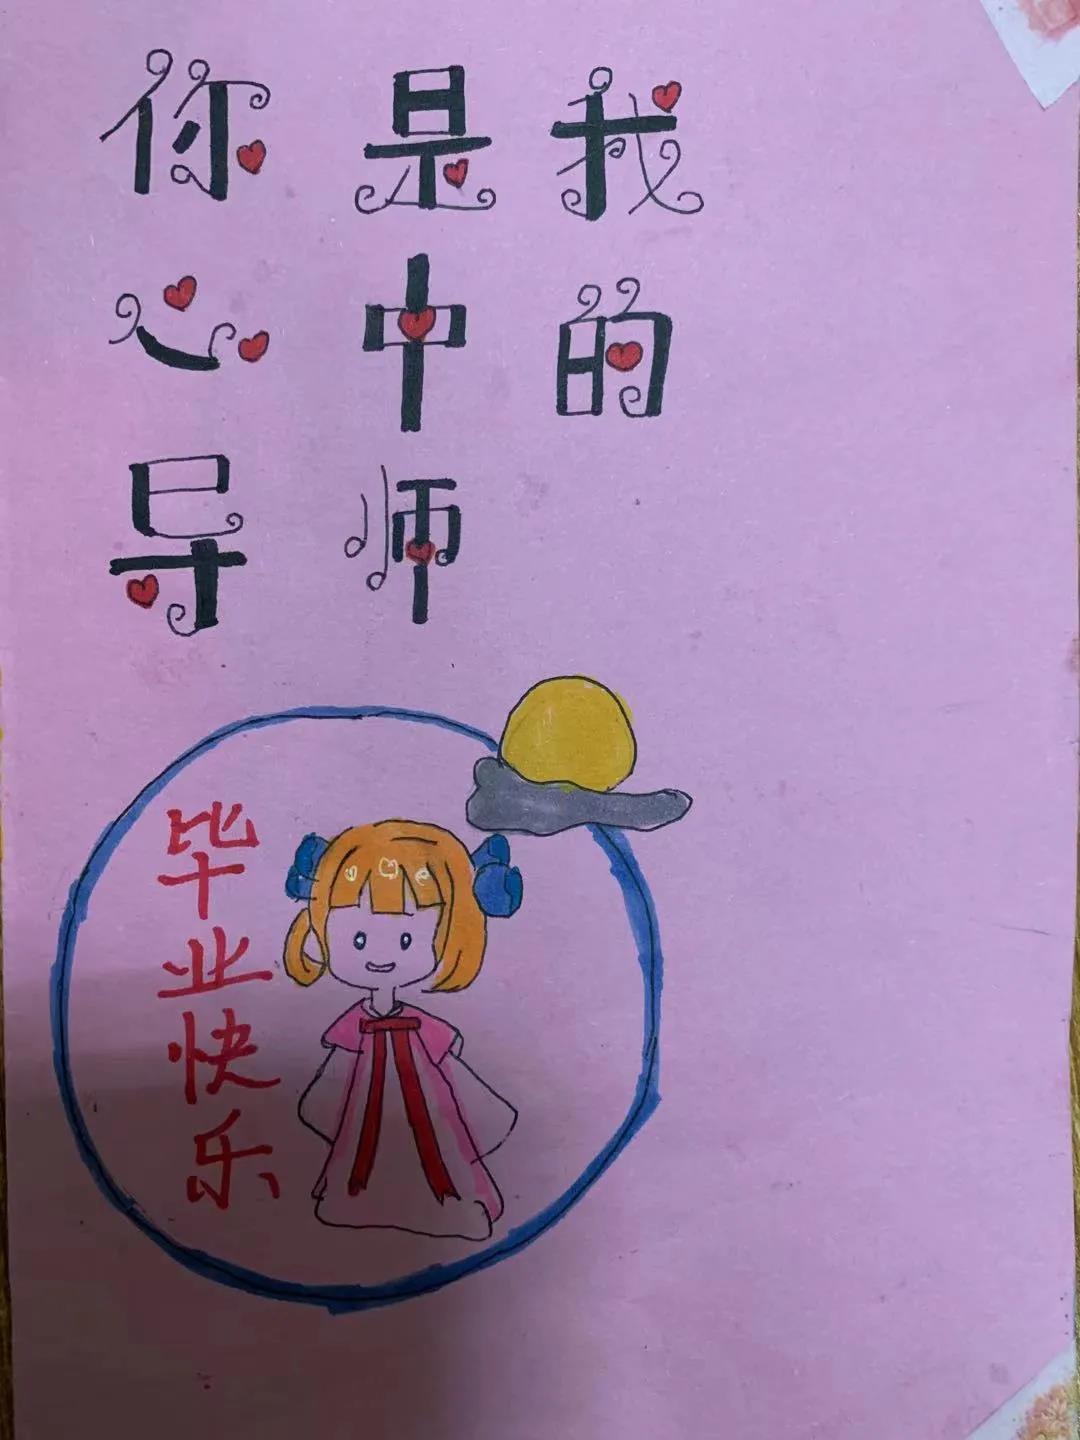 你是我
心中的
导师
毕业快乐